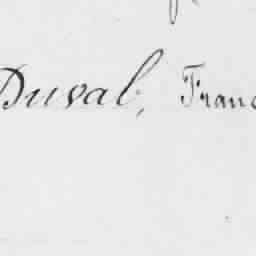 Duval, Franc